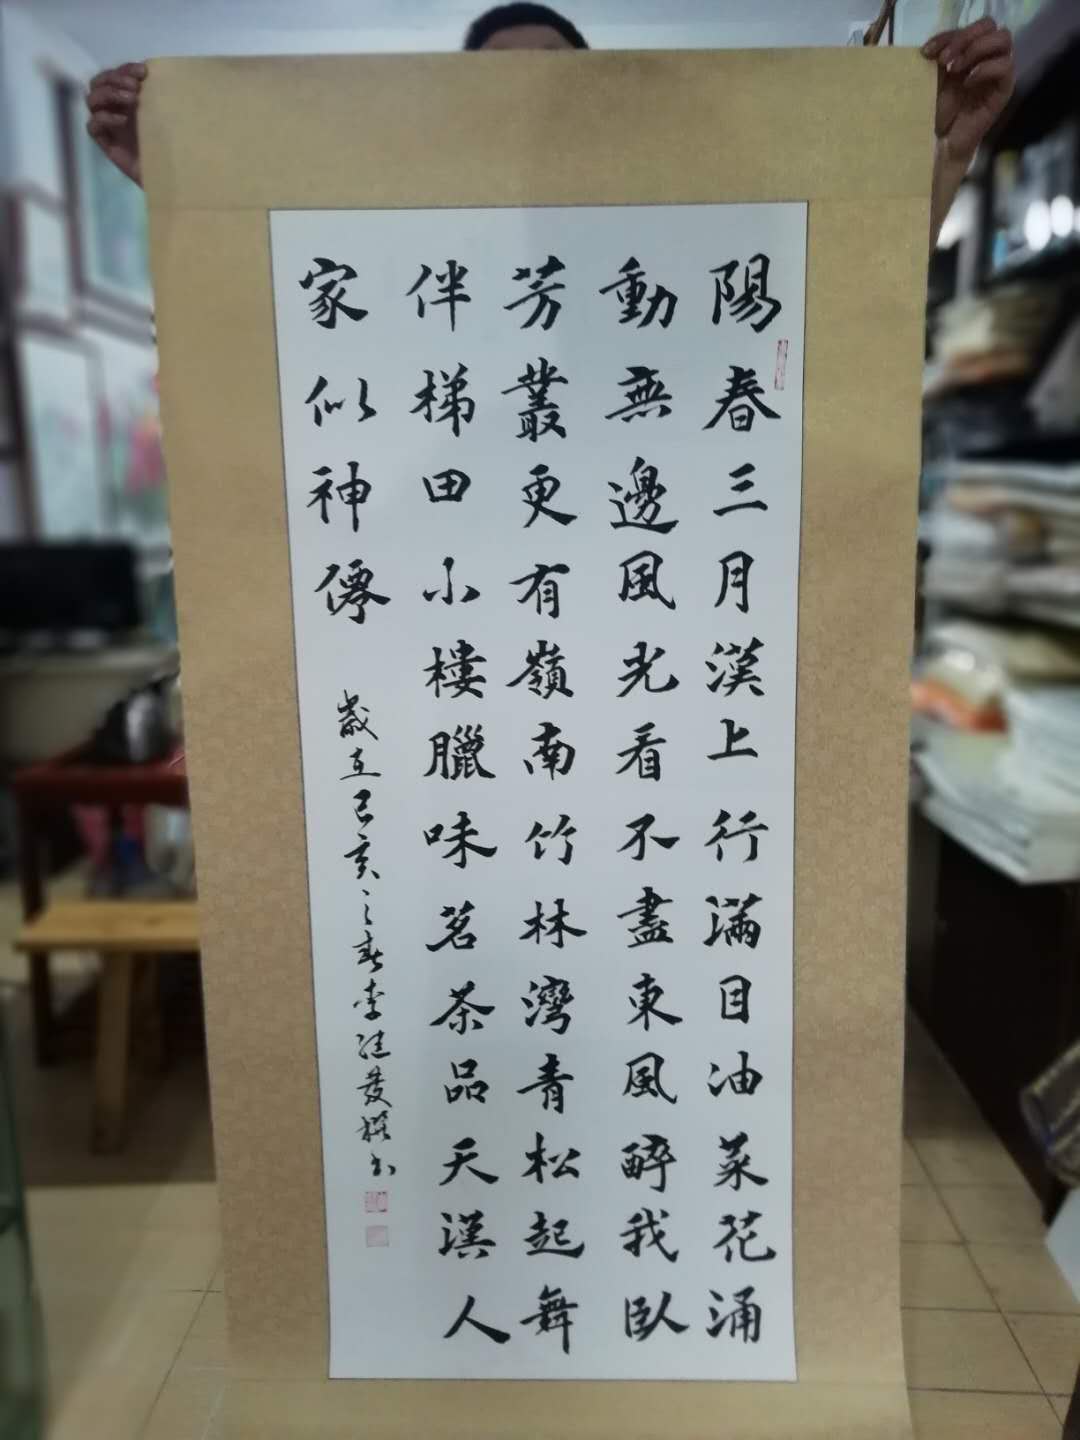 陽春三月漢上行滿目油菜花涌
動無邊風光看不盡東風醉我臥
芳叢更有嶺南竹林灣青松起舞
伴梯田小樓臘味茗茶品天漢人
家似神僊
歲在己亥之春李建發撰書